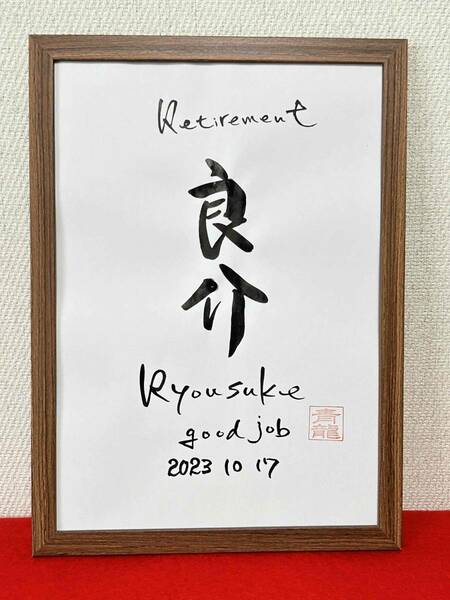 Retirement
良
介
Ryousuke
good job
2023 10 17
青
龍